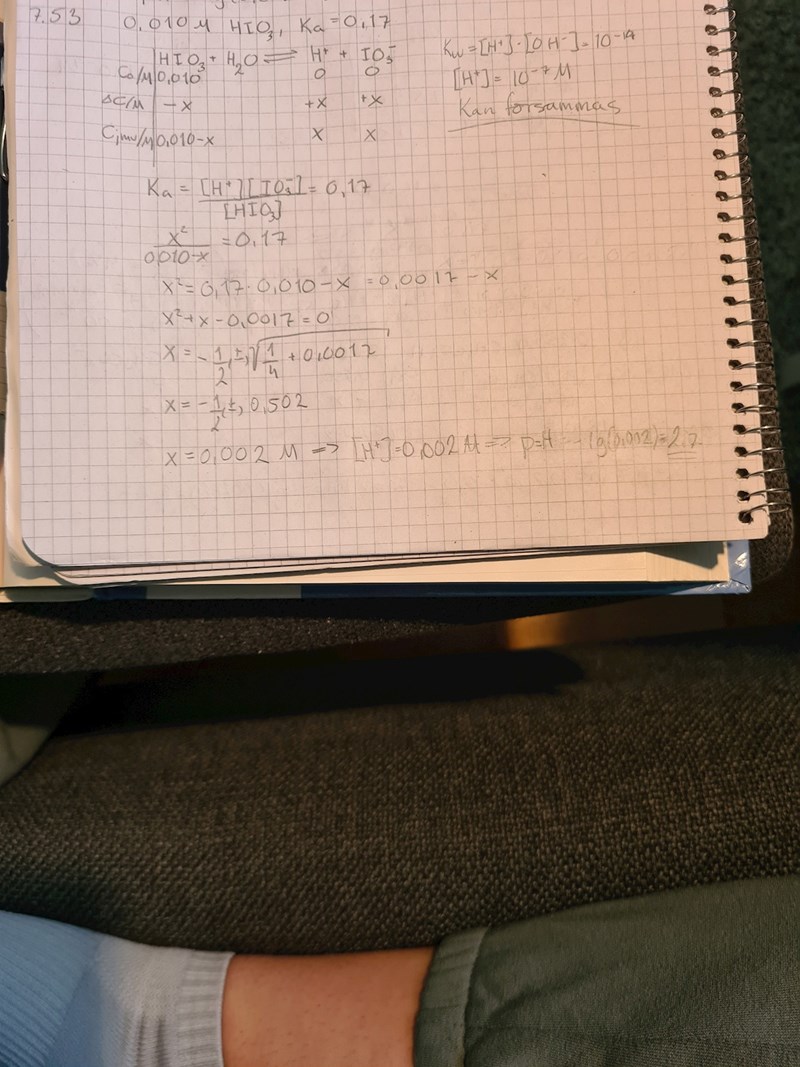 7.53 0,010 M HIO₃, Ka = 0,17
HIO₃ + H₂O ⇌ H⁺ + IO₃⁻
C₀/M 0,010 0 0
ΔC/M -x +x +x
Cjmv/M 0,010-x x x
Kw = [H⁺]·[OH⁻] = 10⁻¹⁴
[H⁺] = 10⁻⁷ M
Kan försammas
Ka = [H⁺][IO₃⁻]/[HIO₃] = 0,17
x²/0,010-x = 0,17
x² = 0,17 · 0,010 - x = 0,0017 - x
x² + x - 0,0017 = 0
x = -1/2 (±) √(1/4 + 0,0017)
x = -1/2 (±) 0,502
x = 0,002 M => [H⁺] = 0,002 M => p=H - lg(0,002) = 2,7